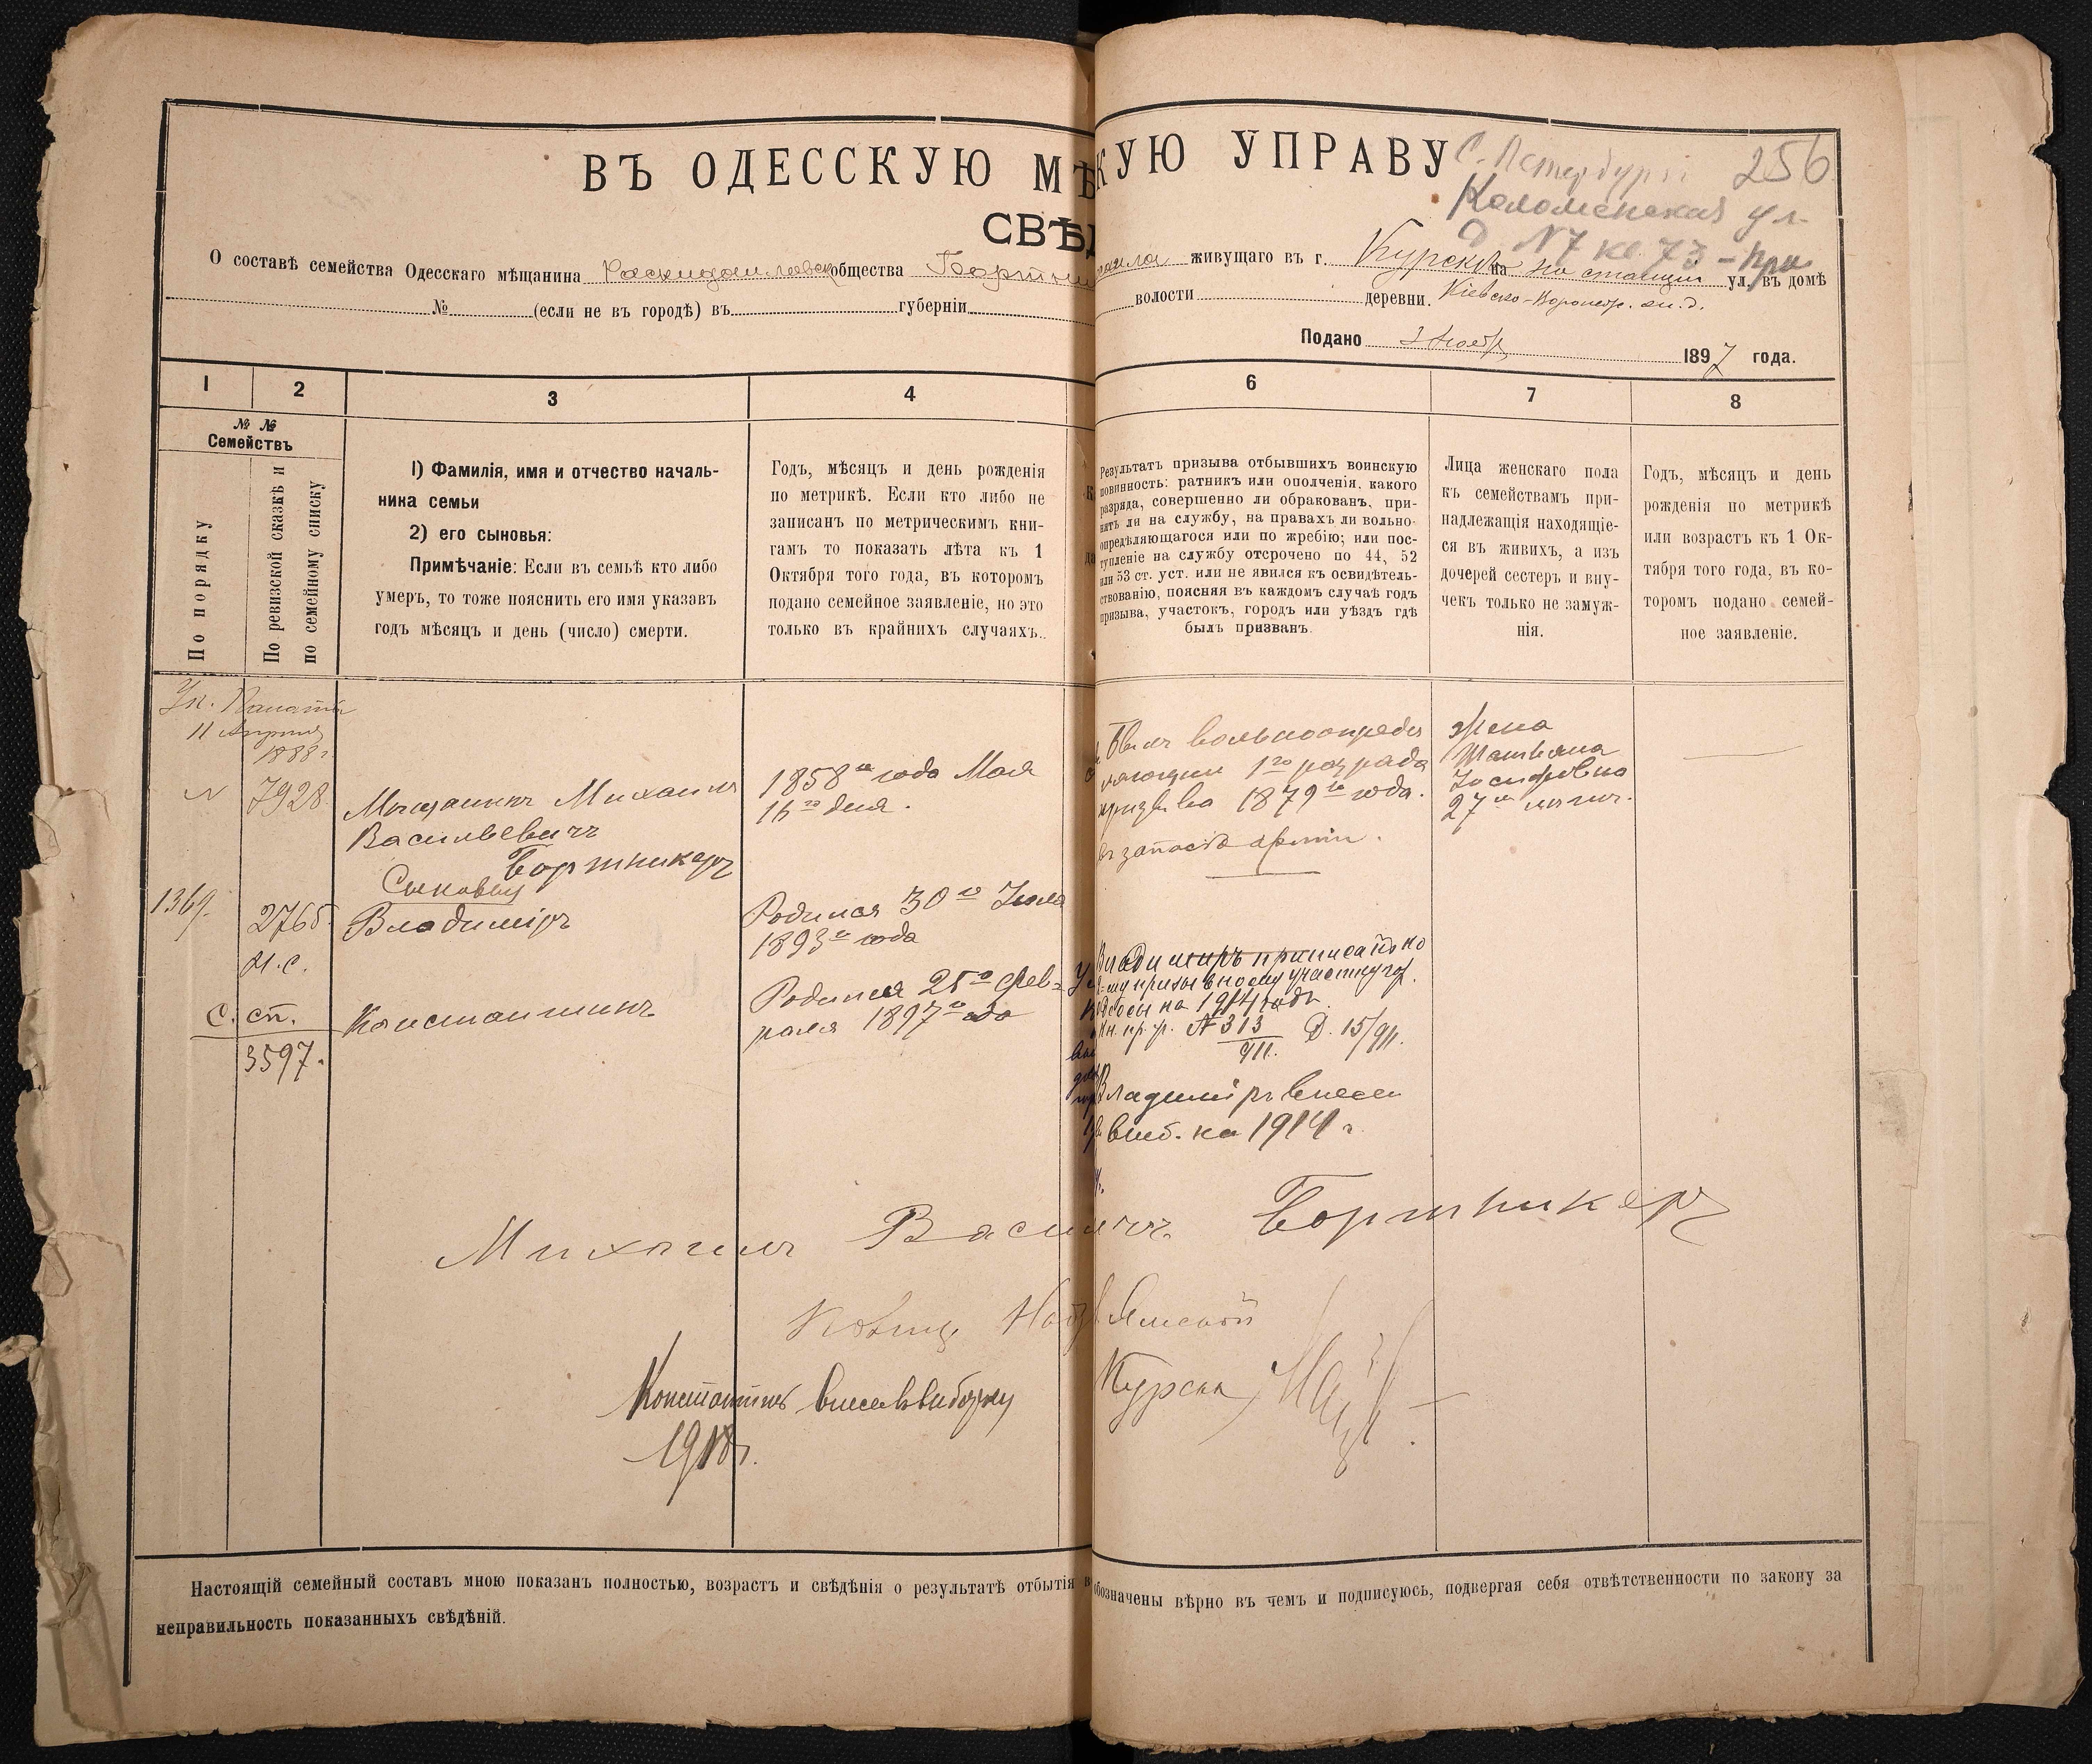 ВЪ ОДЕССКУЮ МѢ
КУЮ УПРАВУ
С. Петербургъ 256
Коломенская ул.
Д N7 кв. 73
СВѢД
О составѣ семейства Одесскаго мѣщанина общества
живущаго въ г. Курскѣ на станціи ул. въ домѣ
№ (если не въ городѣ) въ губерніи
волости деревни Кіевско-Воронеж. ж.д.
Подано 3 Нояб 1897 года.
1 2 3 4
6 7 8
№ №
Семействъ
По порядку
По ревизской сказкѣ и
по семейному списку
1) Фамилія, имя и отчество началь-
ника семьи
2) его сыновья:
Примѣчаніе: Если въ семьѣ кто либо
умеръ, то тоже пояснить его имя указавъ
годъ мѣсяцъ и день (число) смерти.
Годъ, мѣсяцъ и день рожденія
по метрикѣ. Если кто либо не
записанъ по метрическимъ кни-
гамъ то показать лѣта къ 1
Октября того года, въ которомъ
подано семейное заявленіе, но это
только въ крайнихъ случаяхъ.
Результатъ призыва отбывшихъ воинскую
повинность: ратникъ или ополченія, какого
разряда, совершенно ли обракованъ, при-
нятъ ли на службу, на правахъ ли вольно-
опредѣляющагося или по жребію; или пос-
тупленіе на службу отсрочено по 44, 52
или 53 ст. уст. или не явился къ освидѣтель-
ствованію, поясняя въ каждомъ случаѣ годъ
призыва, участокъ, городъ или уѣздъ гдѣ
былъ призванъ.
Лица женскаго пола
къ семействамъ при-
надлежащія находящіе-
ся въ живихъ, а изъ
дочерей сестеръ и вну-
чекъ только не замуж-
нія.
Годъ, мѣсяцъ и день
рожденія по метрикѣ
или возрастъ къ 1 Ок-
тября того года, въ ко-
торомъ подано семей-
ное заявленіе.
Ук. Палаты
11 Апрѣля
1888 г
7928
Мѣщанинъ Михаилъ
Васильевичъ
Бортникеръ
1858го года Мая
16го дня.
Былъ вольноопредѣ
ляющій 1го разряда
призыва 1879го года.
въ запасѣ арміи.
Жена
Татьяна
Іосифовна
27 лѣтъ.
Сыновья
1369.
2765
Н.С.
Владиміръ
Родился 30го Іюля
1893го года
С. сп.
3597.
Константинъ
Родился 25го Фев-
раля 1897го года
Владимиръ приписанъ ко
му призывному участку гор.
Одессы на 1914 годъ
Кн. пр. уч. № 313
911. Д. 15/911.
Владиміръ внесен
в выб. на 1914 г.
Михаилъ Василичъ Бортникеръ
Ямской
Курскъ
Константинъ внесен в выборку
1918 г.
Настоящій семейный составъ мною показанъ полностью, возрастъ и свѣдѣнія о результатѣ отбытія
обозначены вѣрно въ чемъ и подписуюсь, подвергая себя отвѣтственности по закону за
неправильность показанныхъ свѣдѣній.